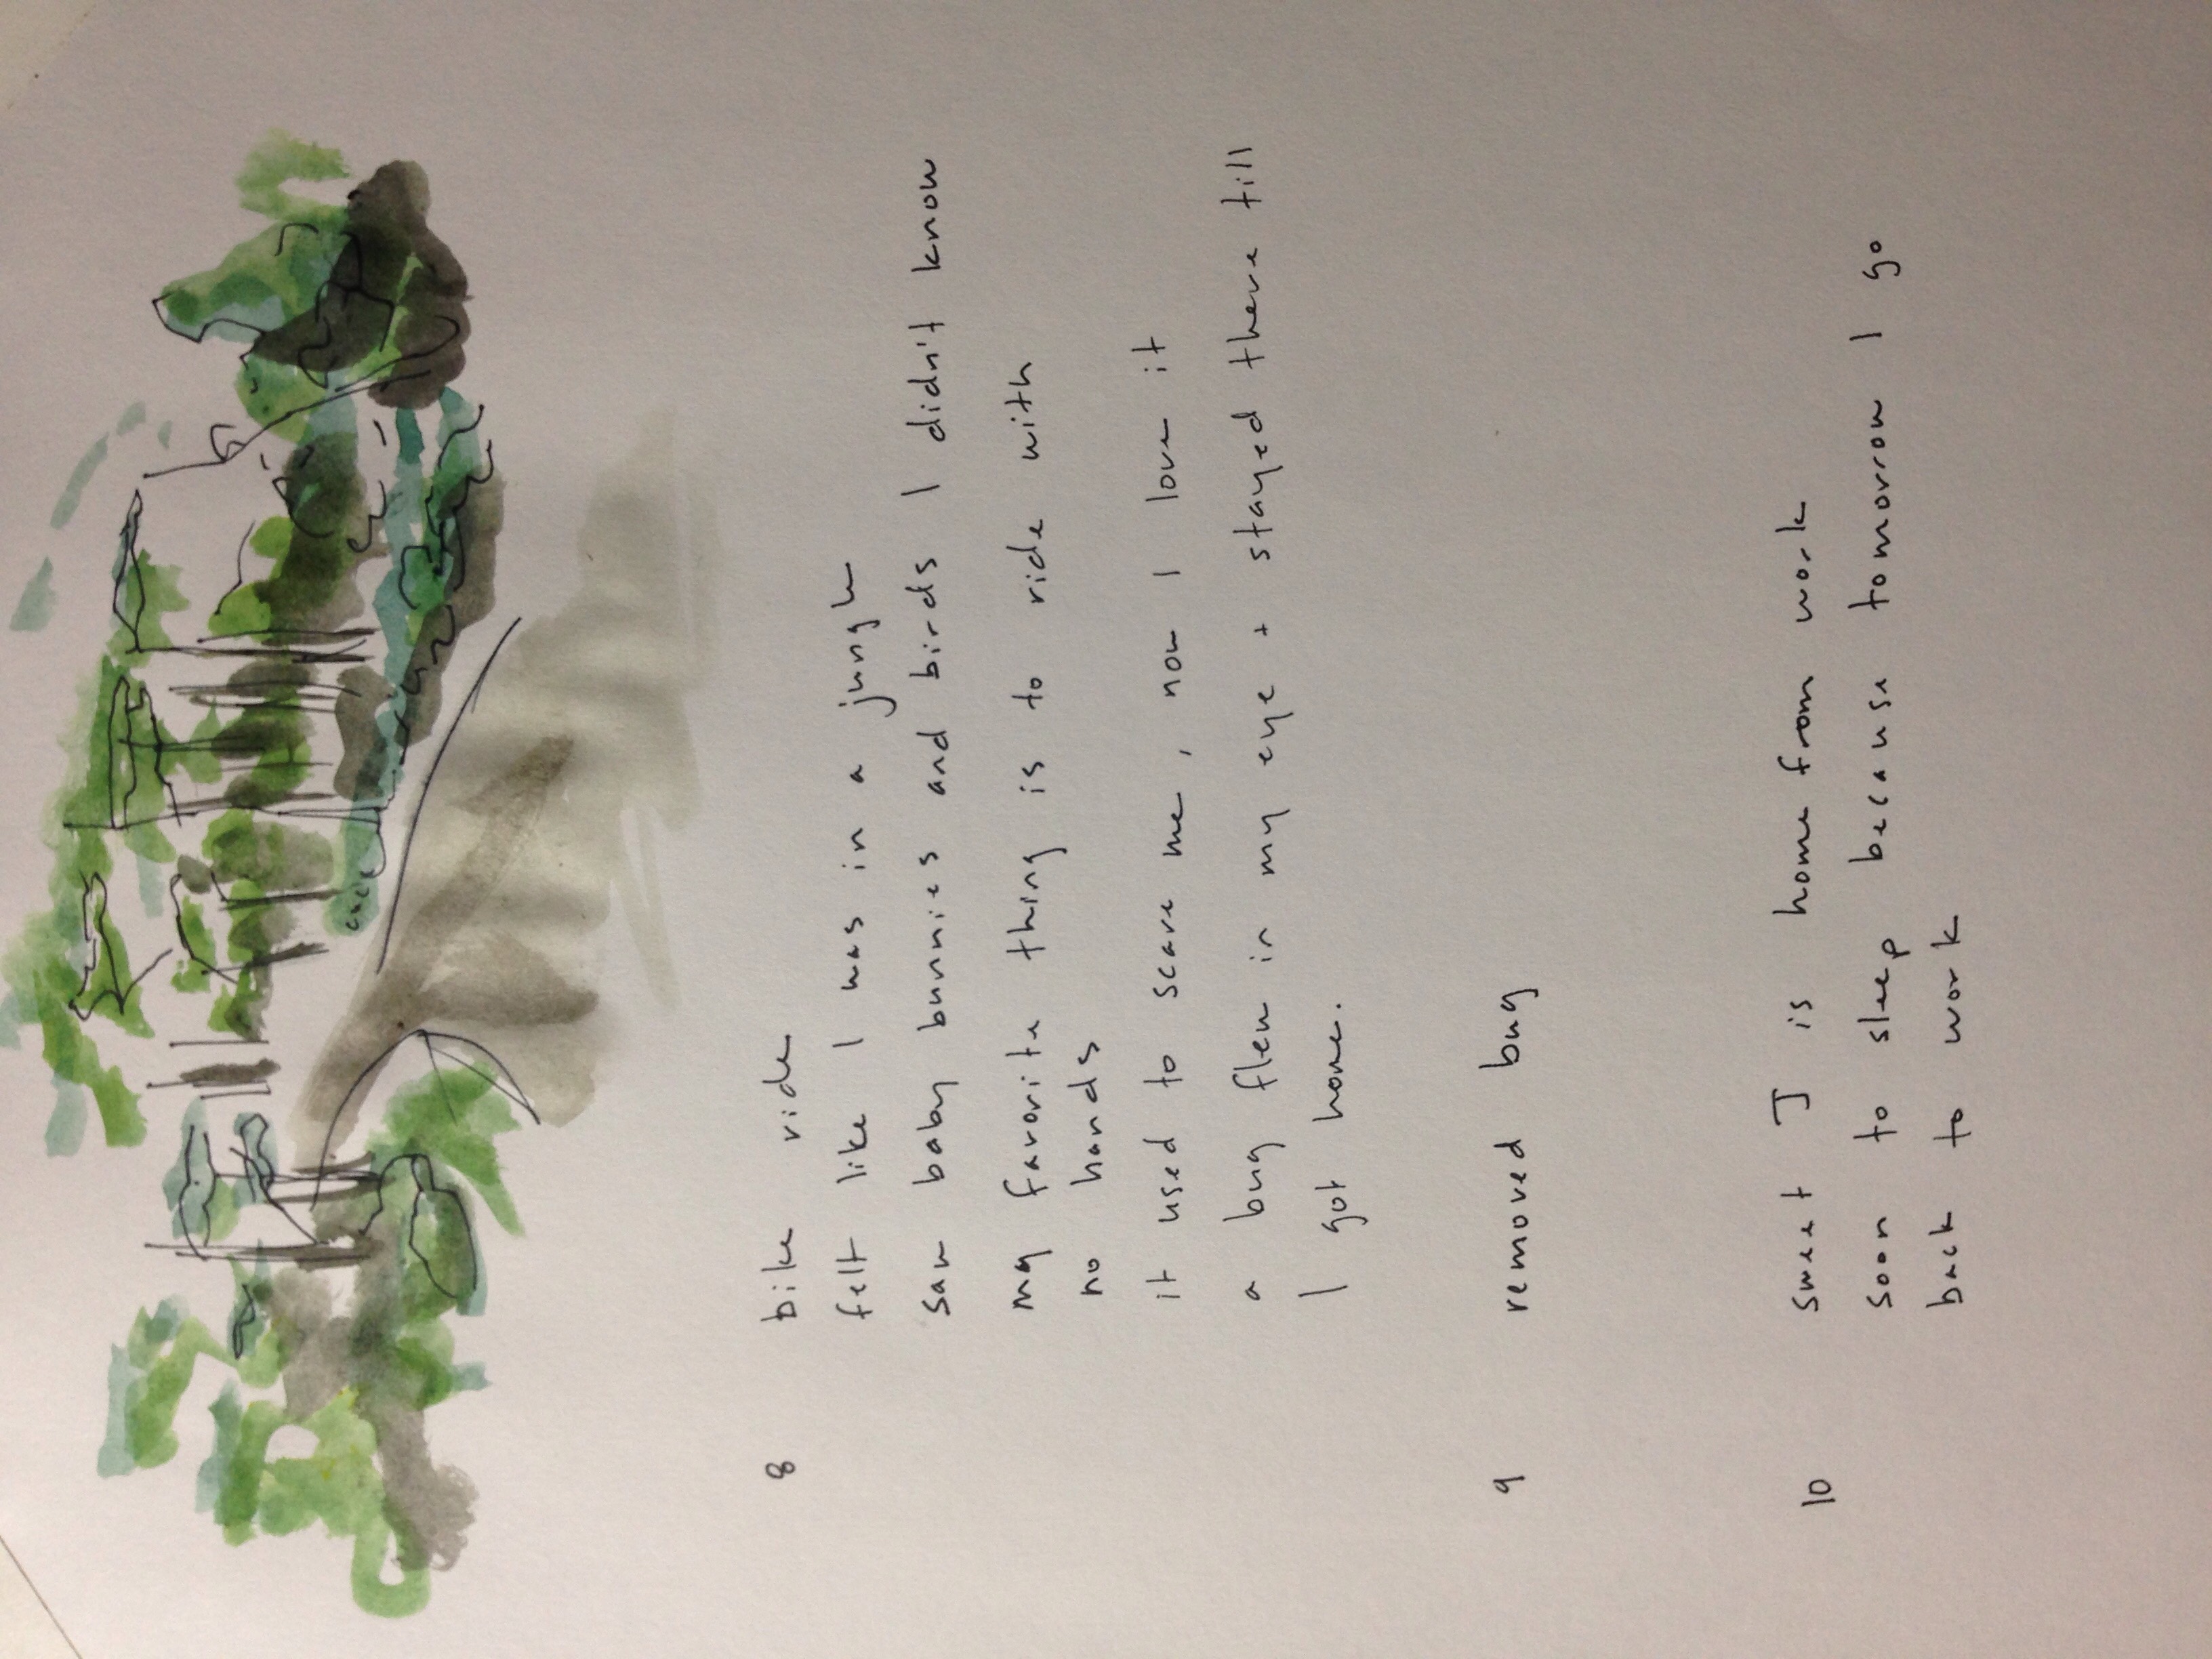 8 bike ride
felt like I was in a jungle
saw baby bunnies and birds I didn't know
my favorite thing is to ride with
no hands
it used to scare me, now I love it
a bug flew in my eye + stayed there till
I got home.
9 removed bug
10 sweet J is home from work
soon to sleep because tomorrow I go
back to work